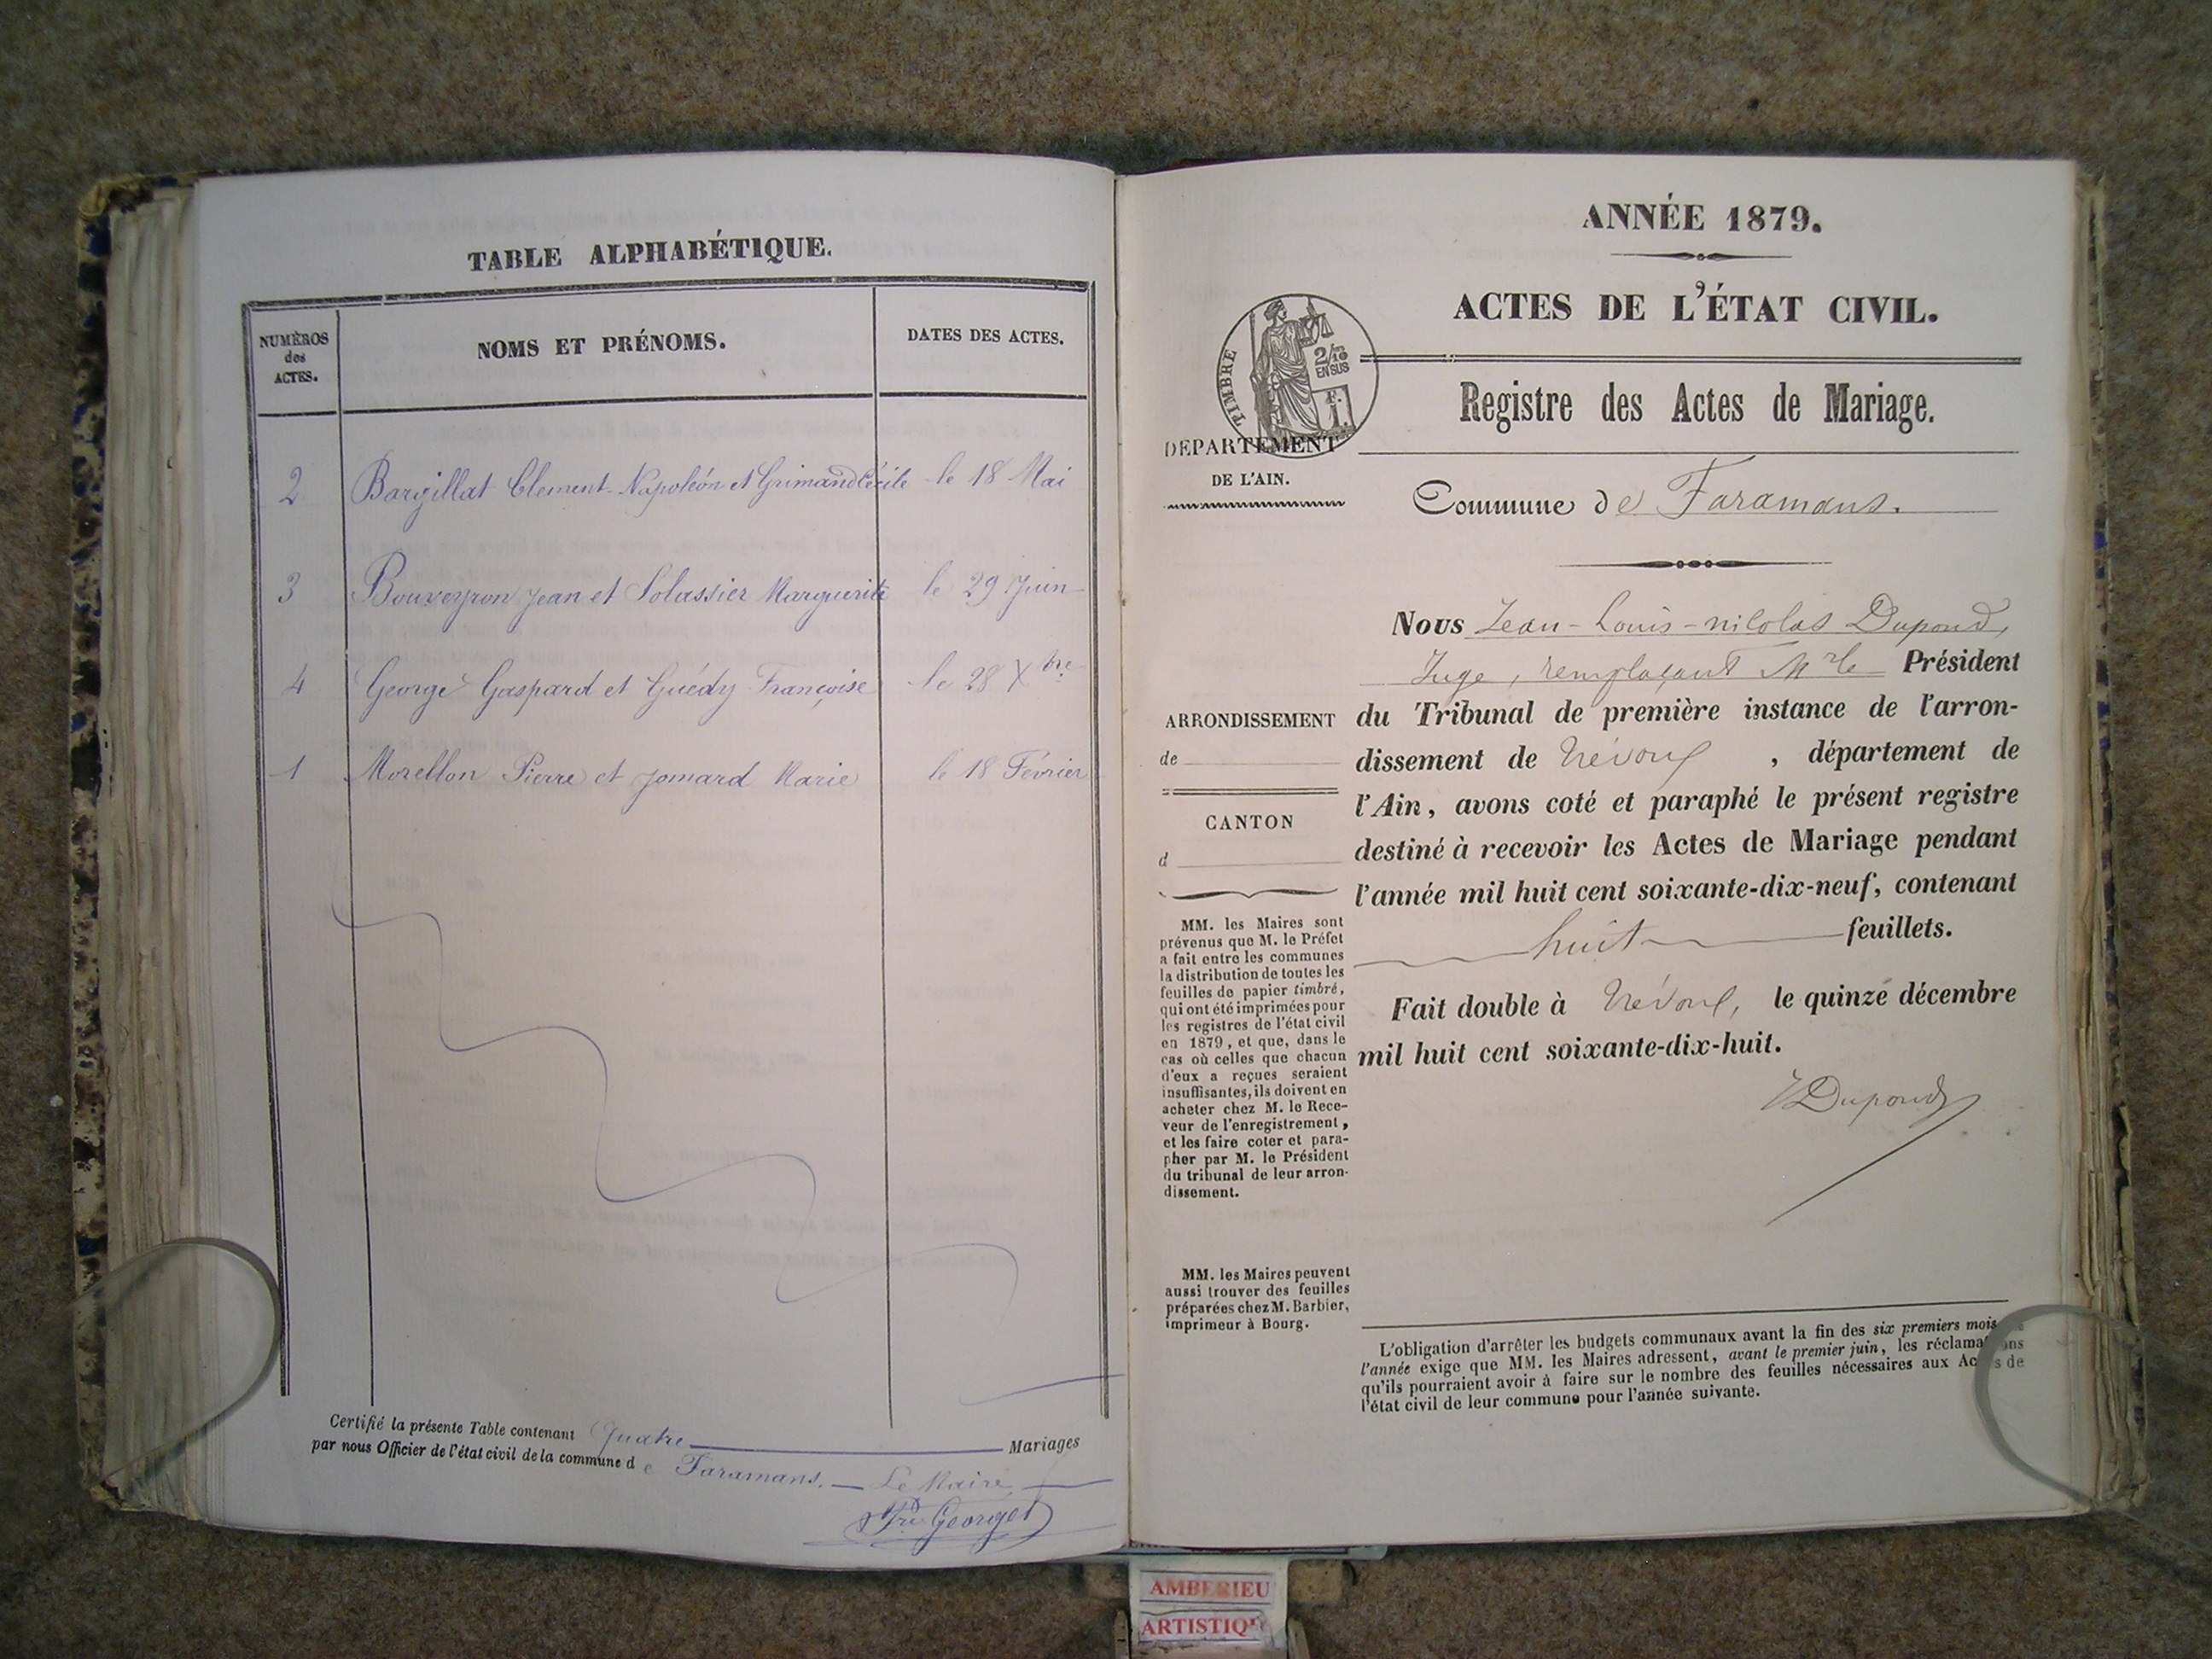 TABLE ALPHABÉTIQUE.
NUMÈROS
des
ACTES.
NOMS ET PRÉNOMS.
DATES DES ACTES.
2 Bargillat Clement-Napoléon et Grimand Cécile le 18 Mai
3 Bouveyron Jean et Solassier Marguerite le 29 Juin
4 George Gaspard et Guédy Françoise le 28 Xbre
1 Morellon Pierre et Jomard Marie le 18 Février
Certifié la présente Table contenant Quatre Mariages
par nous Officier de l'état civil de la commune de Faramans. Le Maire
Georges
ANNÉE 1879.
ACTES DE L'ÉTAT CIVIL.
TIMBRE
2/10
EN SUS
F.
1.
Registre des Actes de Mariage.
DÉPARTEMENT
DE L'AIN.
Commune de Faramans.
Nous Jean-Louis-nicolas Dupond,
Juge, remplaçant Mr le Président
du Tribunal de première instance de l'arron-
dissement de Trévoux, département de
l'Ain, avons coté et paraphé le présent registre
destiné à recevoir les Actes de Mariage pendant
l'année mil huit cent soixante-dix-neuf, contenant
huit feuillets.
Fait double à Trévoux, le quinze décembre
mil huit cent soixante-dix-huit.
Dupond
ARRONDISSEMENT
de
CANTON
d
MM. les Maires sont
prévenus que M. le Préfet
a fait entre les communes
la distribution de toutes les
feuilles de papier timbré,
qui ont été imprimées pour
les registres de l'état civil
en 1879, et que, dans le
cas où celles que chacun
d'eux a reçues seraient
insuffisantes, ils doivent en
acheter chez M. le Rece-
veur de l'enregistrement,
et les faire coter et para-
pher par M. le Président
du tribunal de leur arron-
dissement.
MM. les Maires peuvent
aussi trouver des feuilles
préparées chez M. Barbier,
imprimeur à Bourg.
L'obligation d'arrêter les budgets communaux avant la fin des six premiers mois de
l'année exige que MM. les Maires adressent, avant le premier juin, les réclamations
qu'ils pourraient avoir à faire sur le nombre des feuilles nécessaires aux Actes de
l'état civil de leur commune pour l'année suivante.
AMBERIEU
ARTISTIQU